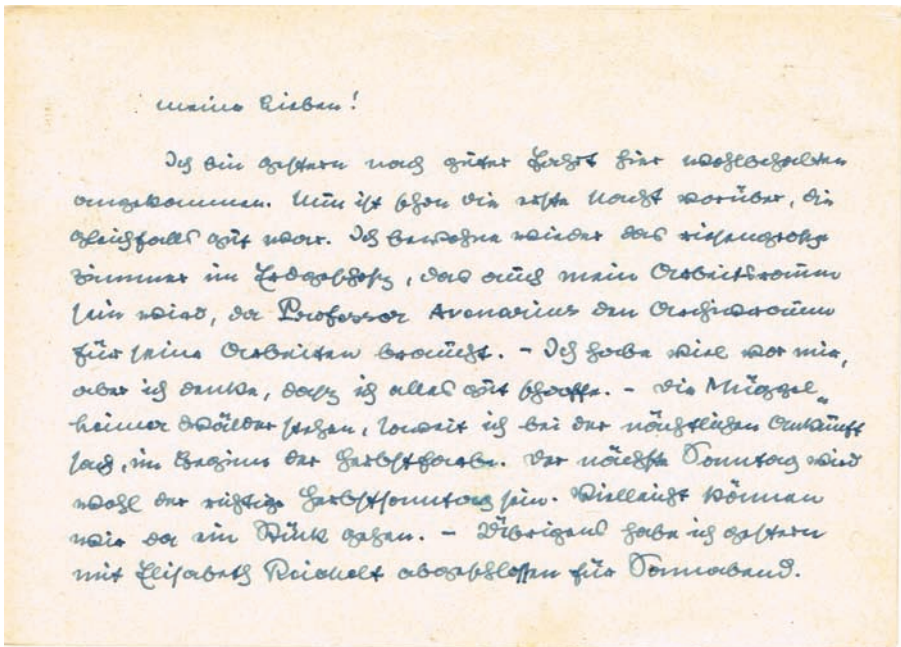 Meine Lieben!
Ich bin gestern nach guter Fahrt hier wohlbehalten
angekommen. Nun ist schon die erste Nacht vorüber, die
gleichfalls gut war. Ich bewohne wieder das riesengroße
Zimmer im Erdgeschoß, das auch mein Arbeitsraum
sein wird, da Professor Avenarius den Archivraum
für seine Arbeiten braucht. – Ich habe viel vor mir,
aber ich denke, daß ich alles gut schaffe. – Die Müggel„
heimer Wälder stehen, soweit ich bei der nächtlichen Ankunft
sah, im Beginn der Herbstfarbe. Der nächste Sonntag wird
wohl der richtige Herbstsonntag sein. Vielleicht können
wir da ein Stück gehen. – Übrigens habe ich gestern
mit Elisabeth Reichelt abgeschlossen für Sonnabend.